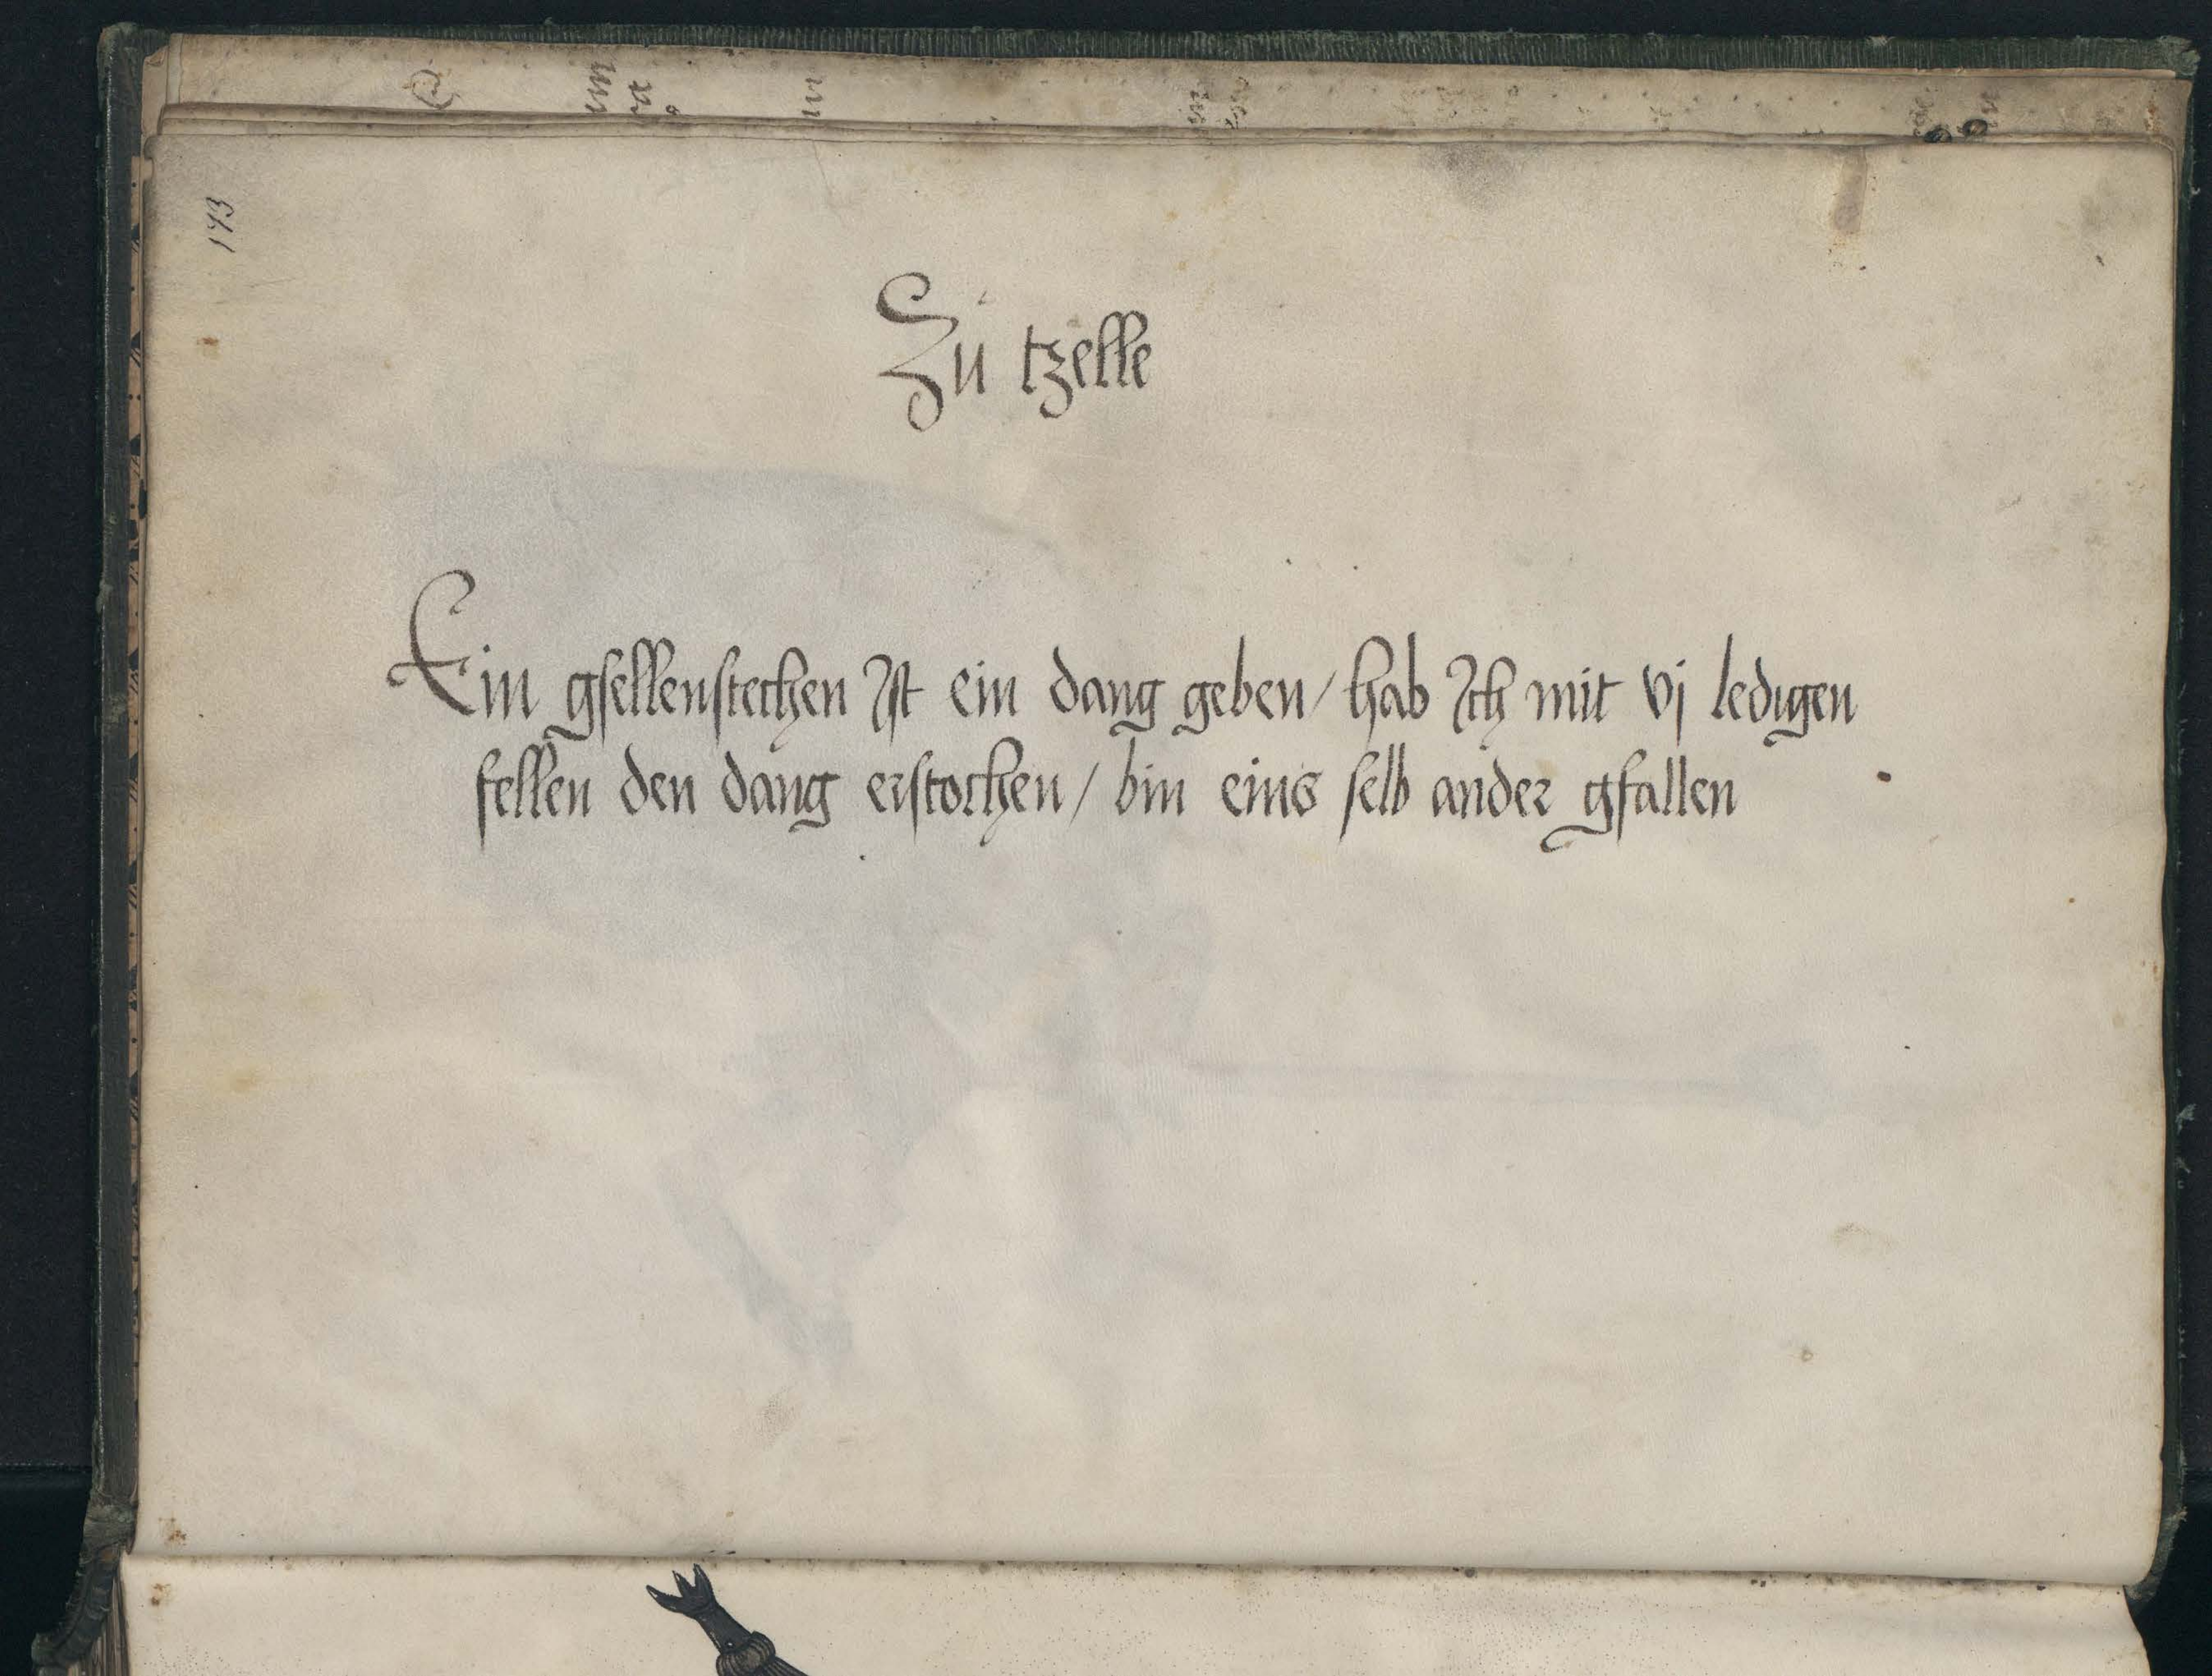 173
Zu tzelle
Ein gsellenstechen Ist ein dang geben / hab Ich mit vj ledigen
fellen den dang erstochen / bin eins selb ander gfallen